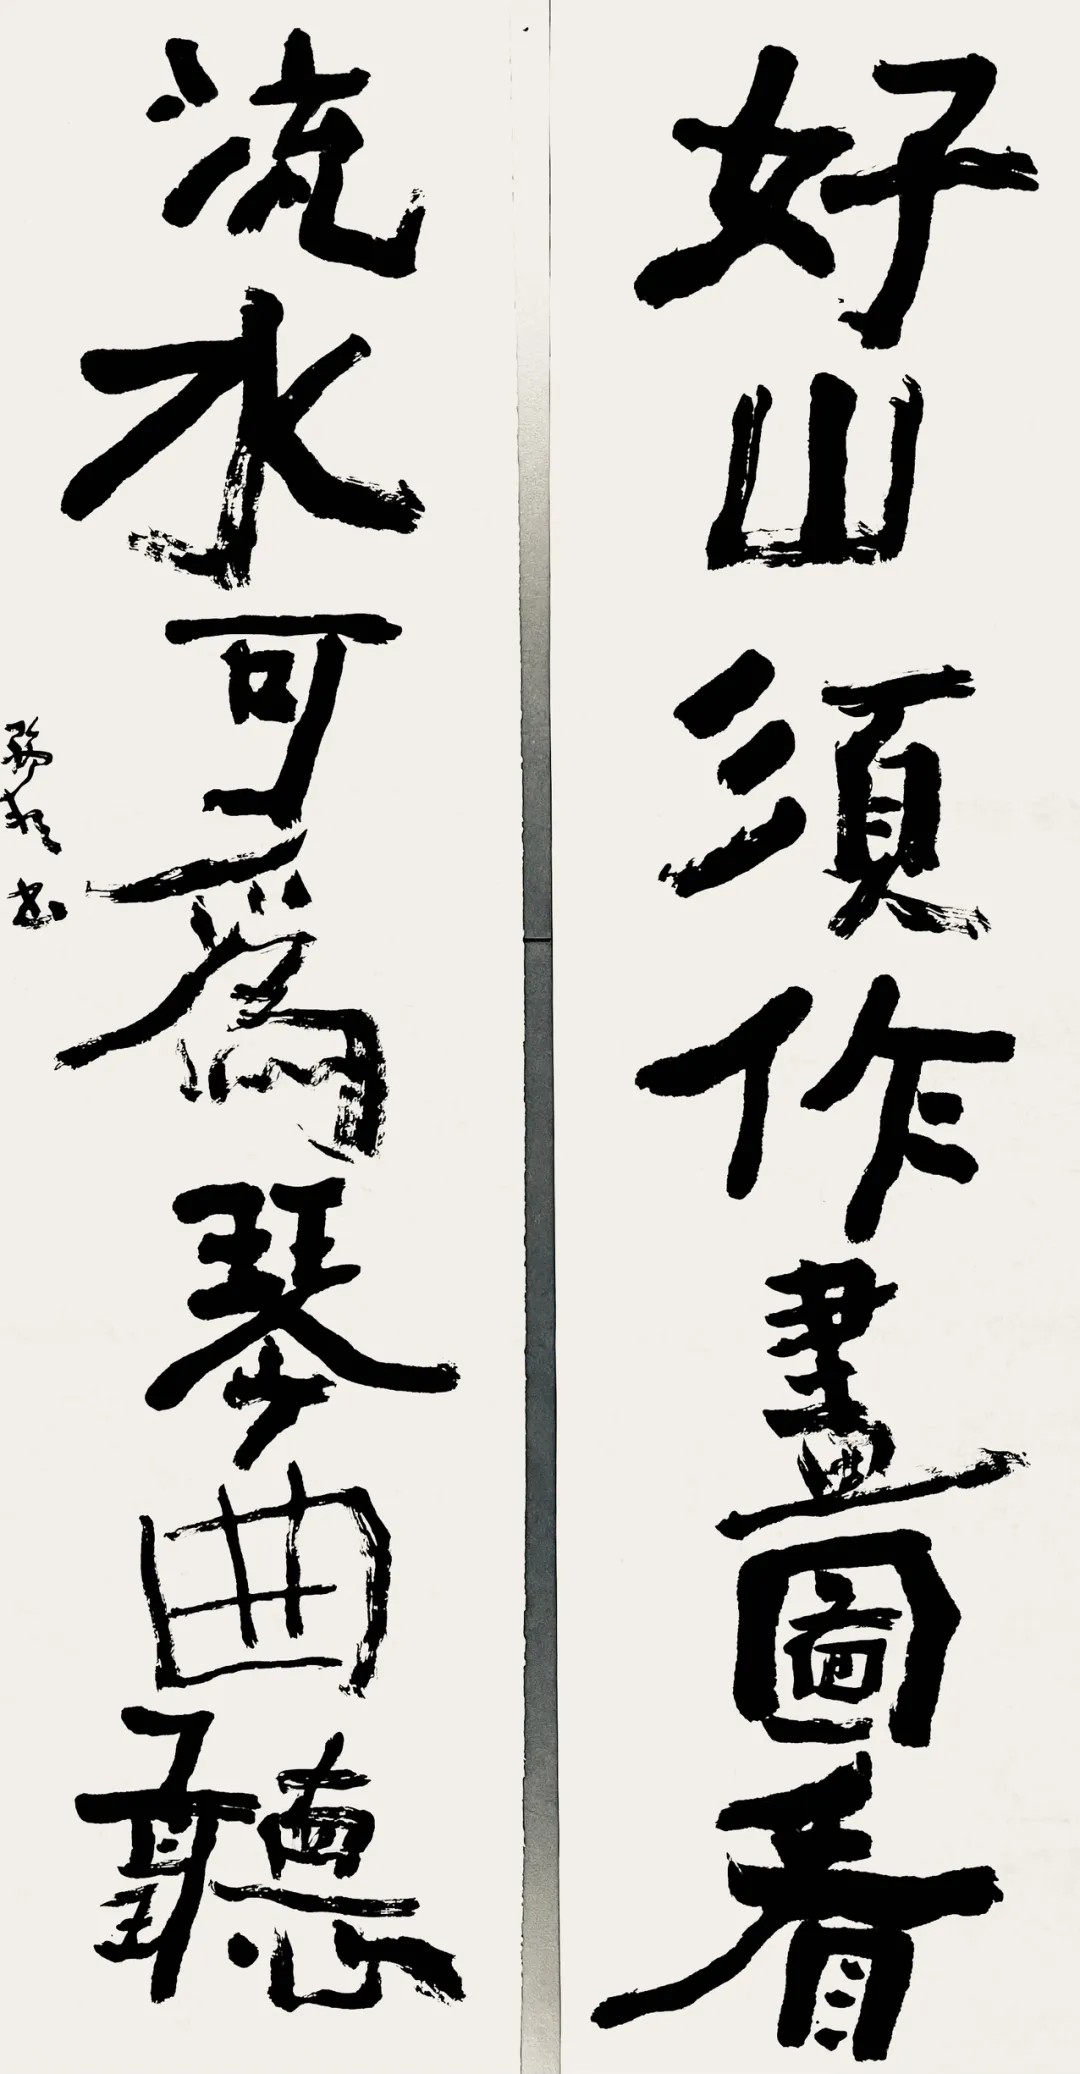 好山須作畫圖看
流水可為琴曲聽